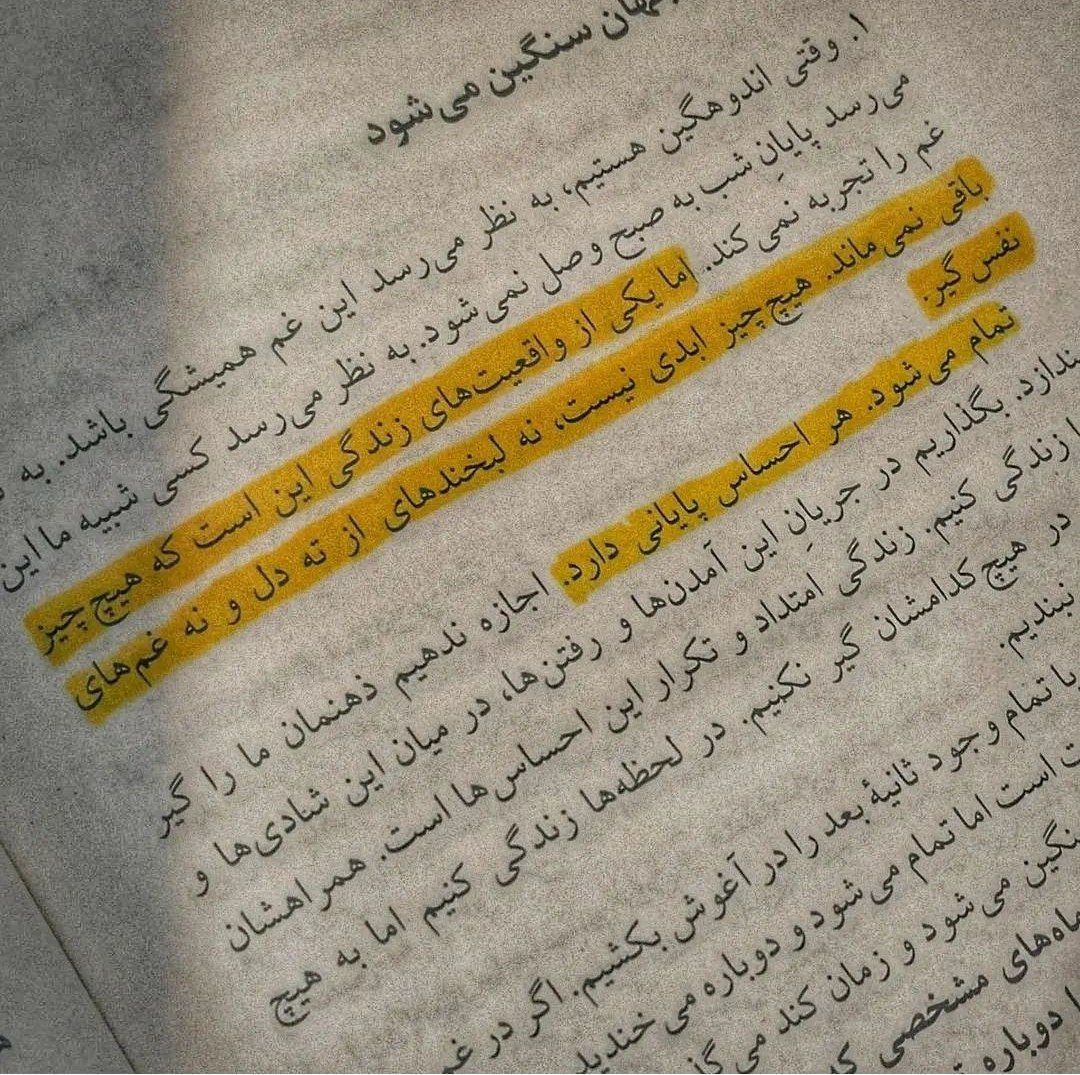 سنگین می‌شود
۱. وقتی اندوهگین هستیم، به نظر می‌رسد این غم همیشگی باشد. به
می‌رسد پایانِ شب به صبح وصل نمی‌شود. به نظر می‌رسد کسی شبیه ما این
غم را تجربه نمی‌کند. اما یکی از واقعیت‌های زندگی این است که هیچ‌چیز
باقی نمی‌ماند. هیچ‌چیز ابدی نیست، نه لبخندهای از ته دل و نه غم‌های
نفس‌گیر.
تمام می‌شود. هر احساس پایانی دارد. اجازه ندهیم ذهنمان ما را گیر
بگذاریم در جریانِ این آمدن‌ها و رفتن‌ها، در میان این شادی‌ها و
زندگی کنیم. زندگی امتداد و تکرار این احساس‌ها است. همراهشان
در هیچ کدامشان گیر نکنیم. در لحظه‌ها زندگی کنیم اما به هیچ
نبندیم.
با تمام وجود ثانیهٔ بعد را در آغوش بکشیم. اگر در
است اما تمام می‌شود و دوباره می‌خندید
می‌شود و زمان کند
مشخصی
دوباره